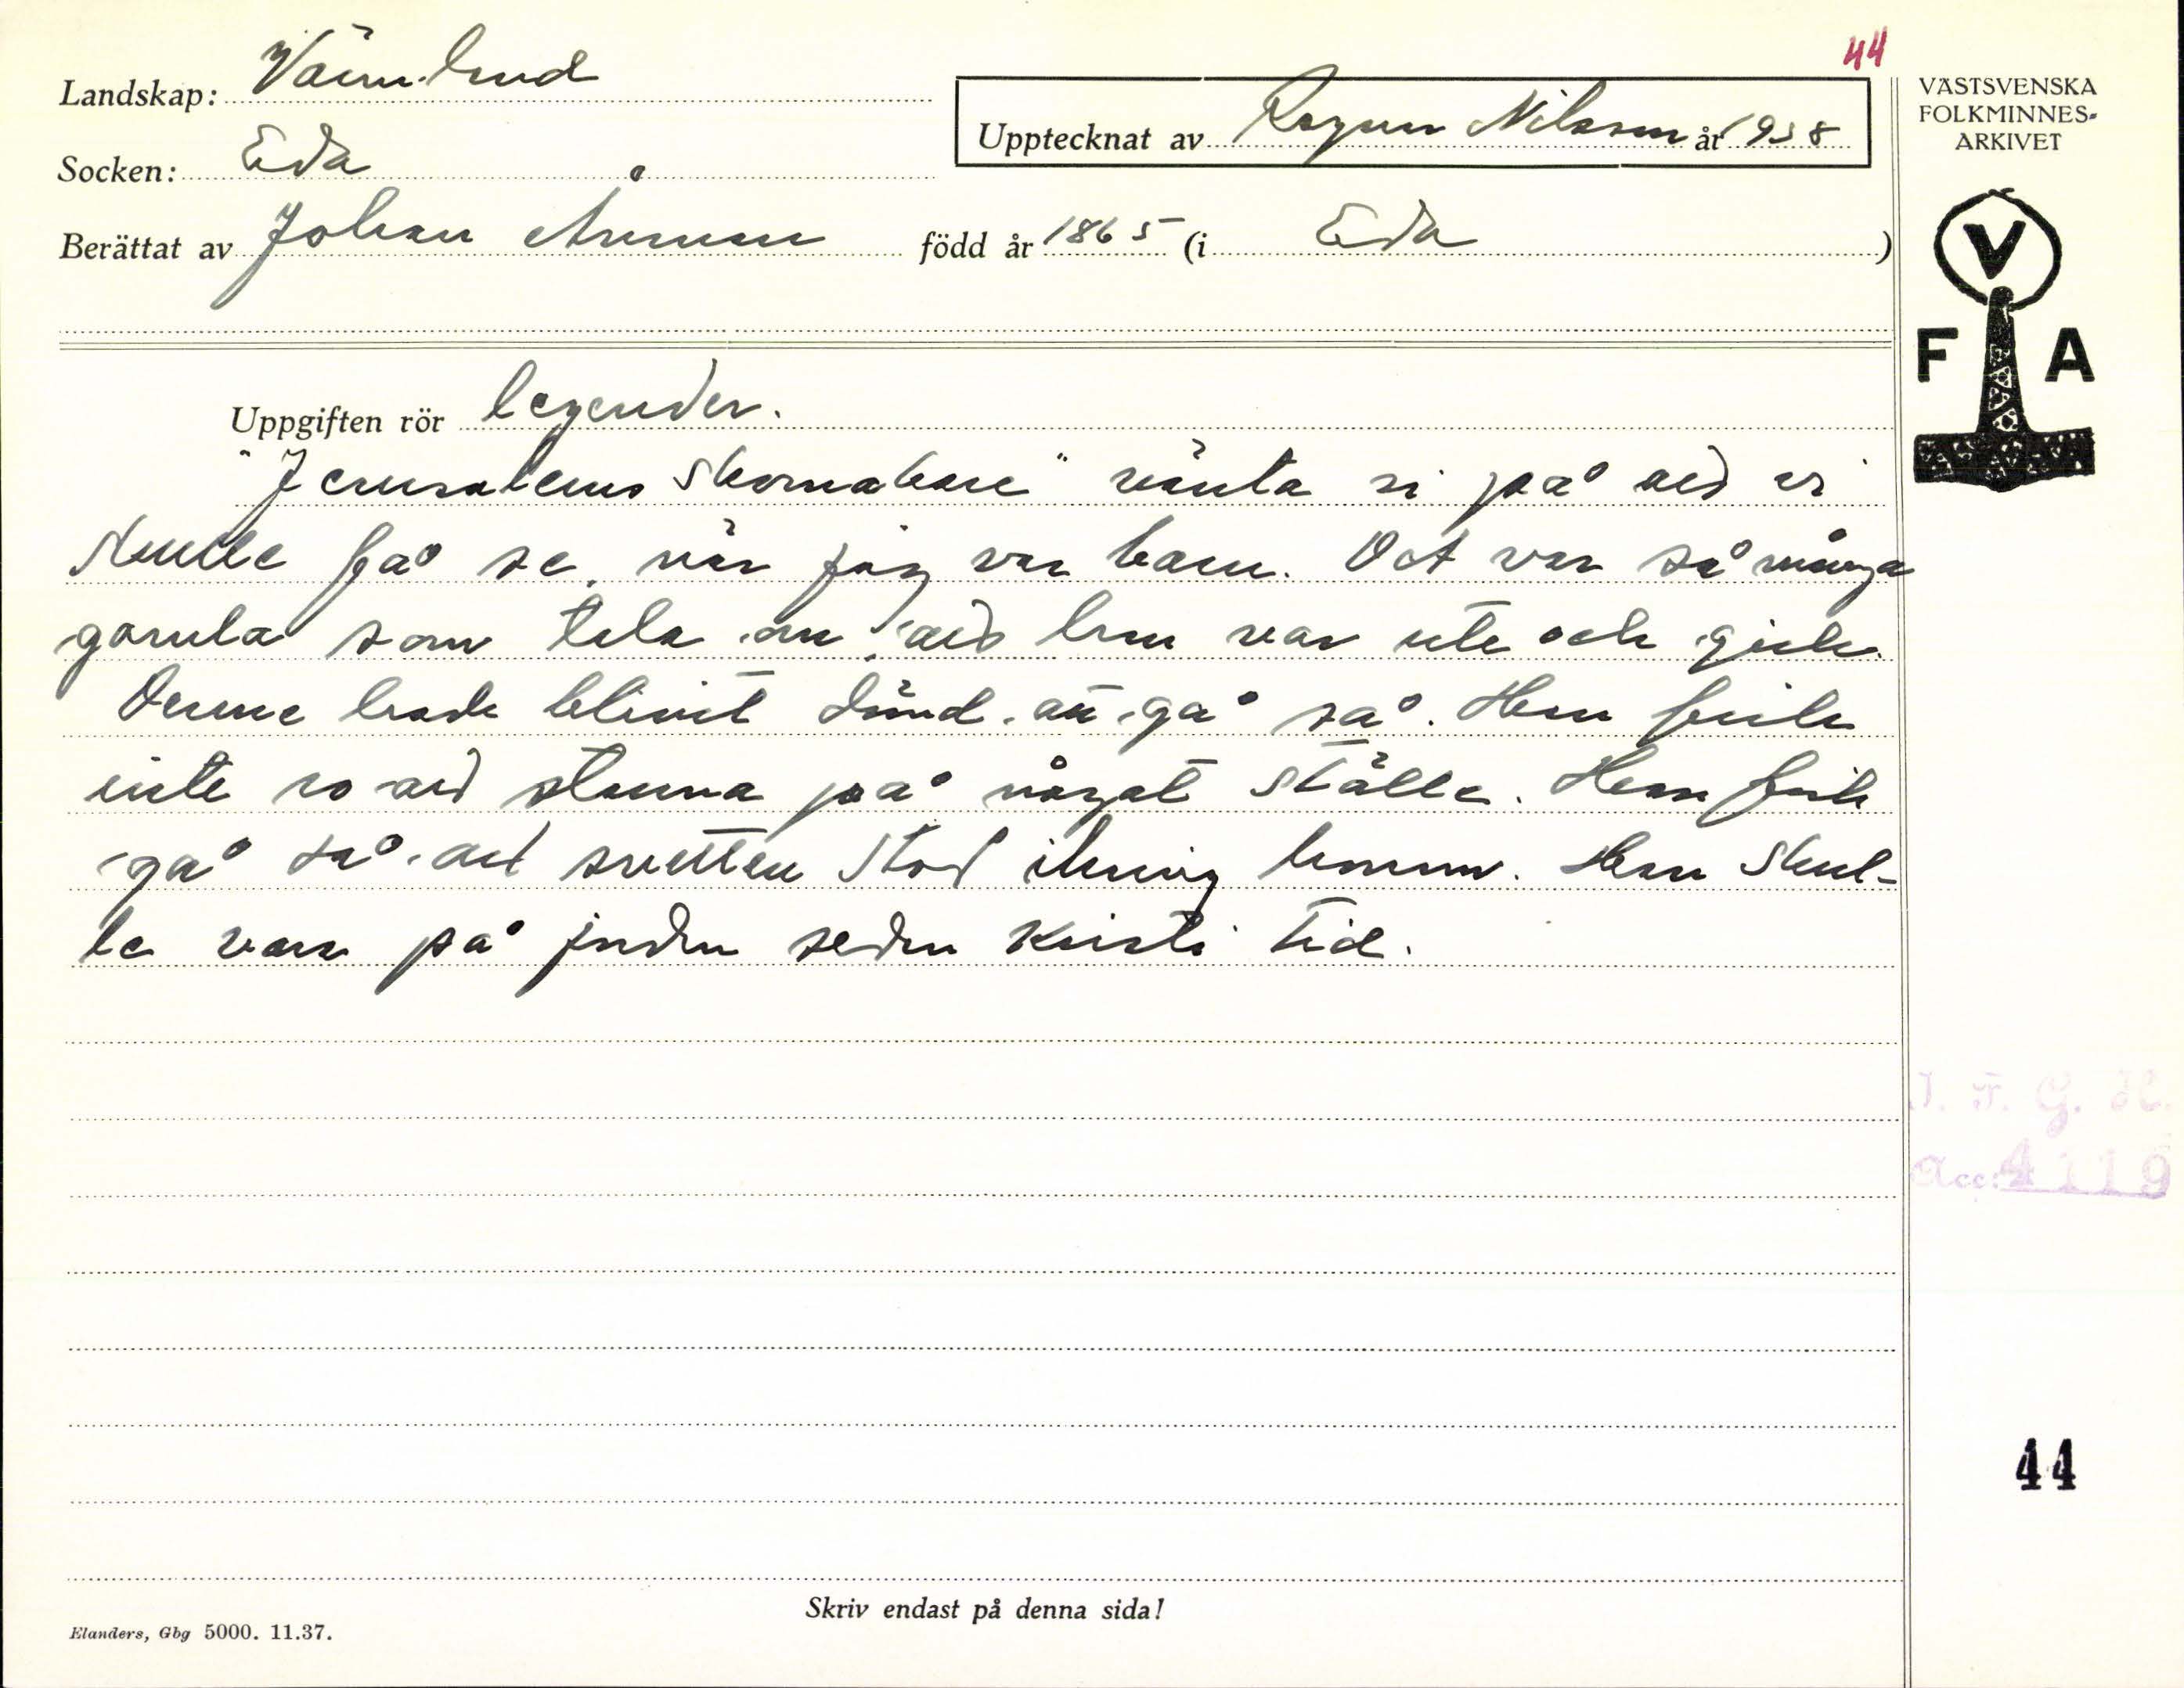 44
Landskap: Värmland
Upptecknat av Ragnar Nilsson år 1938
VÄSTSVENSKA
FOLKMINNES-
ARKIVET
Socken: Eda
Berättat av Johan född år 1865 (i Eda)
V
F A
Uppgiften rör legender.
"Jerusalems skomakare" vänta vi på att vi
skulle få se, när jag var barn. Det var så många
gamla som tala om, att han var ute och gick.
Denne hade blivit dömd att gå så. Han fick
inte ro att stanna på något ställe. Han fick
gå så att svetten stod ikring honom. Han skul-
le vara på jorden sedan Kristi tid.
I. F. G. H.
Acc: 4119
44
Skriv endast på denna sida!
Elanders, Gbg 5000. 11.37.